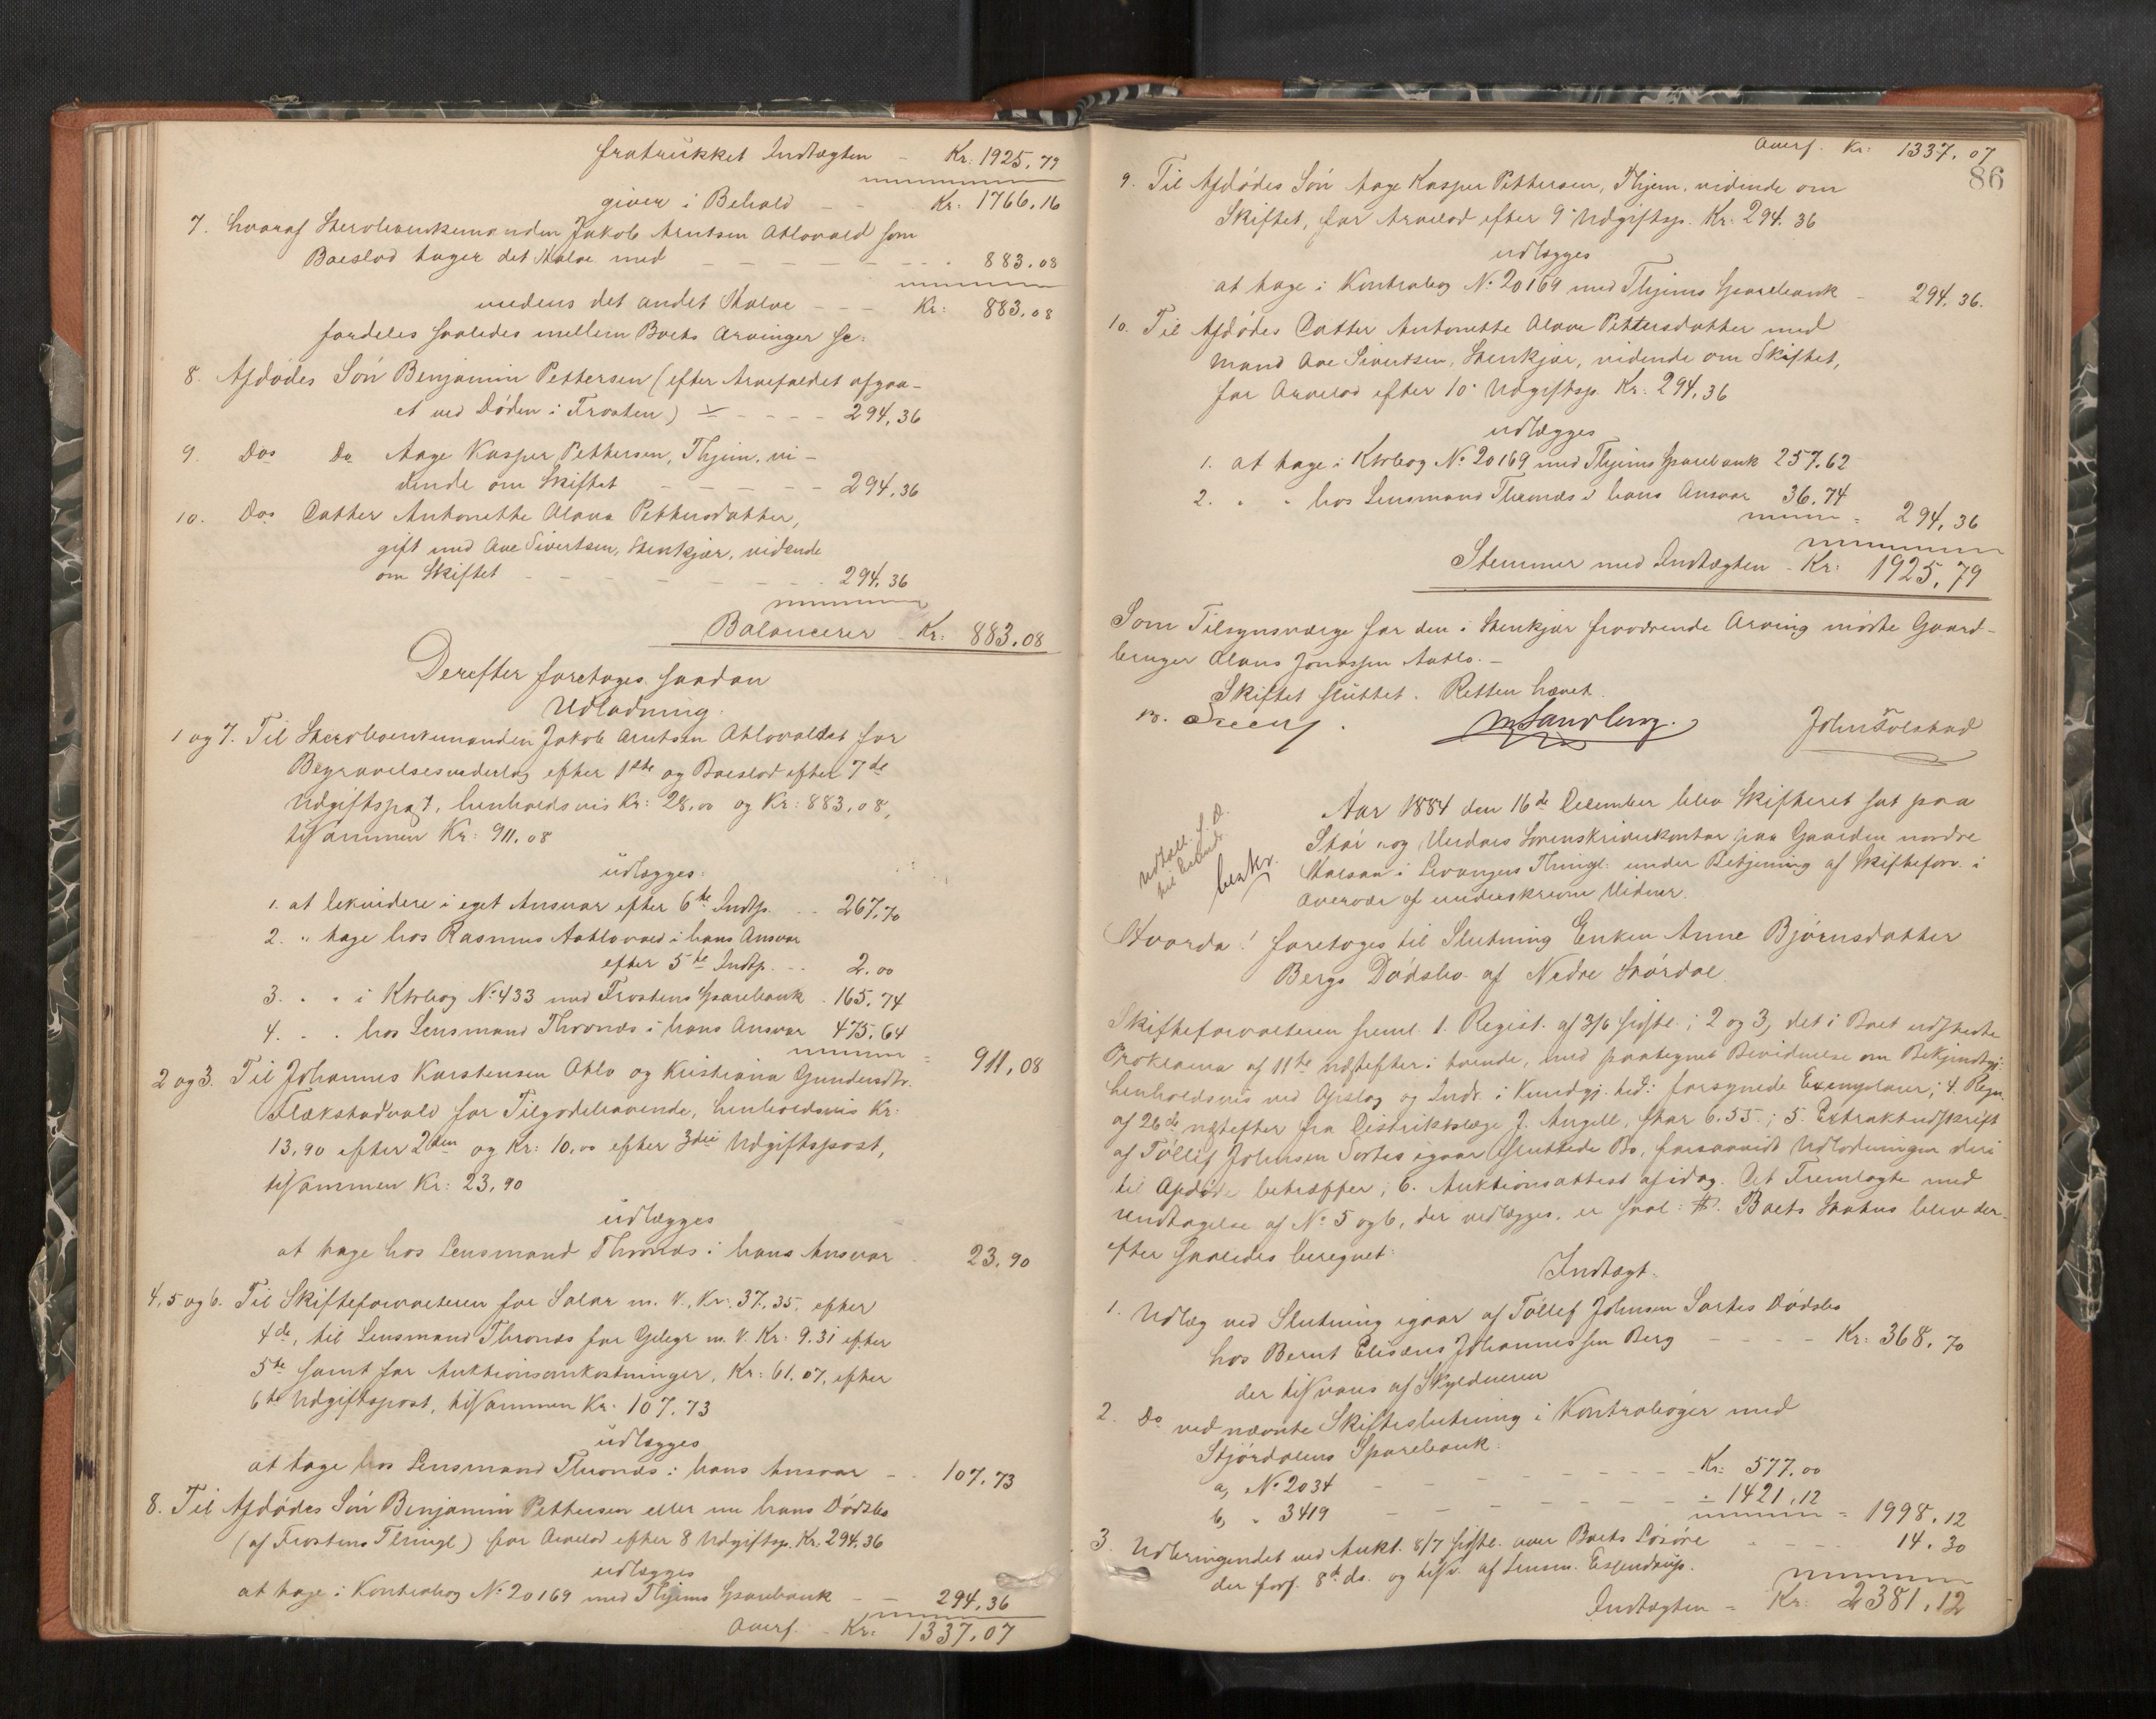 fratrukket Indtægten - Kr: 1925,79
giver i Behold - - Kr: 1766,16
7. hvoraf Stervboenkemanden Jakob Arntsen Ahlovald som
Boeslod tager det Halve med - - - 883,08
medens det andet Halve - - - Kr: 883,08
fordeles saaledes mellem Boets Arvinger sc:
8. Afdødes Søn Benjamin Pettersen (efter Arvefaldet afgaa-
et ved Døden i Frosten) - - - - 294,36
9. Dos Do Aage Kasper Pettersen, Thjem, vi-
dende om Skiftet - - - - - 294,36
10. Dos Datter Antonette Olava Pettersdatter,
gift med Ove Sivertsen, Stenkjær, vidende
om Skiftet - - - - - - 294,36
Balancerer - Kr: 883,08
Derefter foretoges saadan
Udlodning.
1 og 7. Til Stervboenkemanden Jakob Arntsen Ahlovaldet for
Begravelsesvederlag efter 1ste og Boeslod efter 7de
Udgiftspost, henholdsvis Kr: 28,00 og Kr: 883,08,
tilsammen Kr: 911,08
udlægges:
1. at lekvidere i eget Ansvar efter 6te Indtp. - - 267,70
2. " tage hos Rasmus Aahlovald i hans Ansvar
efter 5te Indtp. - - 2.00
3. " " i Ktrbog No 433 med Frostens Sparebank - 165,74
4. " " hos Lensmand Thronæs i hans Ansvar 475,64
= 911,08
2 og 3. Til Johannes Karstensen Ahlo og Kristiana Gundersdtr.
Flækstadvald for Tilgodehavende, henholdsvis Kr:
13,90 efter 2den og Kr: 10,00 efter 3die Udgiftspost,
tilsammen Kr: 23,90
udlægges
at tage hos Lensmand Thronæs i hans Ansvar - 23,90
4, 5 og 6. Til Skifteforvalteren for Salær m. V., Kr: 37,35, efter
4de, til Lensmand Thronæs for Gebyr m. V. Kr: 9.31 efter
5te samt for Auktionsomkostninger, Kr: 61.07, efter
6te Udgiftspost, tilsammen Kr: 107.73
udlægges
at tage hos Lensmand Thronæs i hans Ansvar - - 107,73
8. Til Afdødes Søn Benjamin Pettersen eller nu hans Dødsbo
(af Frostens Thingl) for Arvelod efter 8 Udgiftsp. Kr: 294,36
udlægges
at tage i Kontrabog No 20169 med Thjems Sparebank - - 294,36
Overf. - Kr: 1337,07
Overf. Kr: 1337,07
86
9. Til Afdødes Søn Aage Kasper Pettersen, Thjem, vidende om
Skiftet, for Arvelod efter 9. Udgiftsp. Kr: 294,36
udlægges
at tage i Kontrabog No 20169 med Thjems Sparebank - 294,36.
10. Til Afdødes Datter Antonette Olava Pettersdatter med
Mand Ove Sivertsen, Stenkjær, vidende om Skiftet,
for Arvelod efter 10. Udgiftsp. Kr: 294,36
udlægges
1. at tage i Ktrbog No 20169 med Thjems Sparebank 257,62
2. " " hos Lensmand Thronæs i hans Ansvar 36,74
= 294,36
Stemmer med Indtægten - Kr: 1925,79
Som Tilsynsværge for den i Stenkjær fraværende Arving mødte Gaard-
bruger Olaus Jonassen Aahlo. -
Skiftet sluttet. Retten hævet.
M Sandberg. John Tolstad
Aar 1884 den 16de December blev Skifteret sat paa
Stør- og Verdals Sorenskriverkontor paa Gaarden nordre
i Levangers Thingl: under Betjening af Skifteforv. i
Overvær af underskrevne Vidner.
Hvorda! foretoges til Slutning Enken Anne Bjørnsdatter
Bergs Dødsbo af Nedre Størdal.
Skifteforvalteren freml. 1. Regist. af 3/6 sidstl.; 2 og 3, det i Boet udstædte
Proklama af 11te næstefter i tvende, med paategnet Bevidnelse om Bekjendtgj:
henholdsvis ved Opslag og Indr. i Kundgj. tid: forsynede Exemplarer; 4. Regn.
af 26de næstefter fra Distriktslæge J. Angell, stor 6.55; 5. Extraktudskrift
af Tøllef Johnsen Sortes igaar sluttede Bo, forsaavidt Udlodningen deri
til Afdøde betræffer; 6. Auktionsattest af idag. Det Fremlagte med
Undtagelse af No 5 og 6, der vedlægges, er saal: Boets Status blev der-
efter saaledes beregnet:
Indtægt.
1. Udlæg ved Slutning igaar af Tøllef Johnsen Sortes Dødsbo
hos Bernt Elisæus Johannessen Berg - - - - Kr: 368,70
der tilsvares af Skyldneren
2. Do ved nævnte Skifteslutning i Kontrabøger med
Stjørdalens Sparebank:
a, No 2034 - - - - - - - Kr: 577,00
b, " 3419 - - - - - - - " 1421,12
= 1998,12
3. Udbringendet ved Aukt. 8/7 sidstl. over Boets Løsøre - - - 14,30
der forf. 8de ds. og tilsv. af Lensm. Essendrup.
Indtægten = Kr: 2381,12